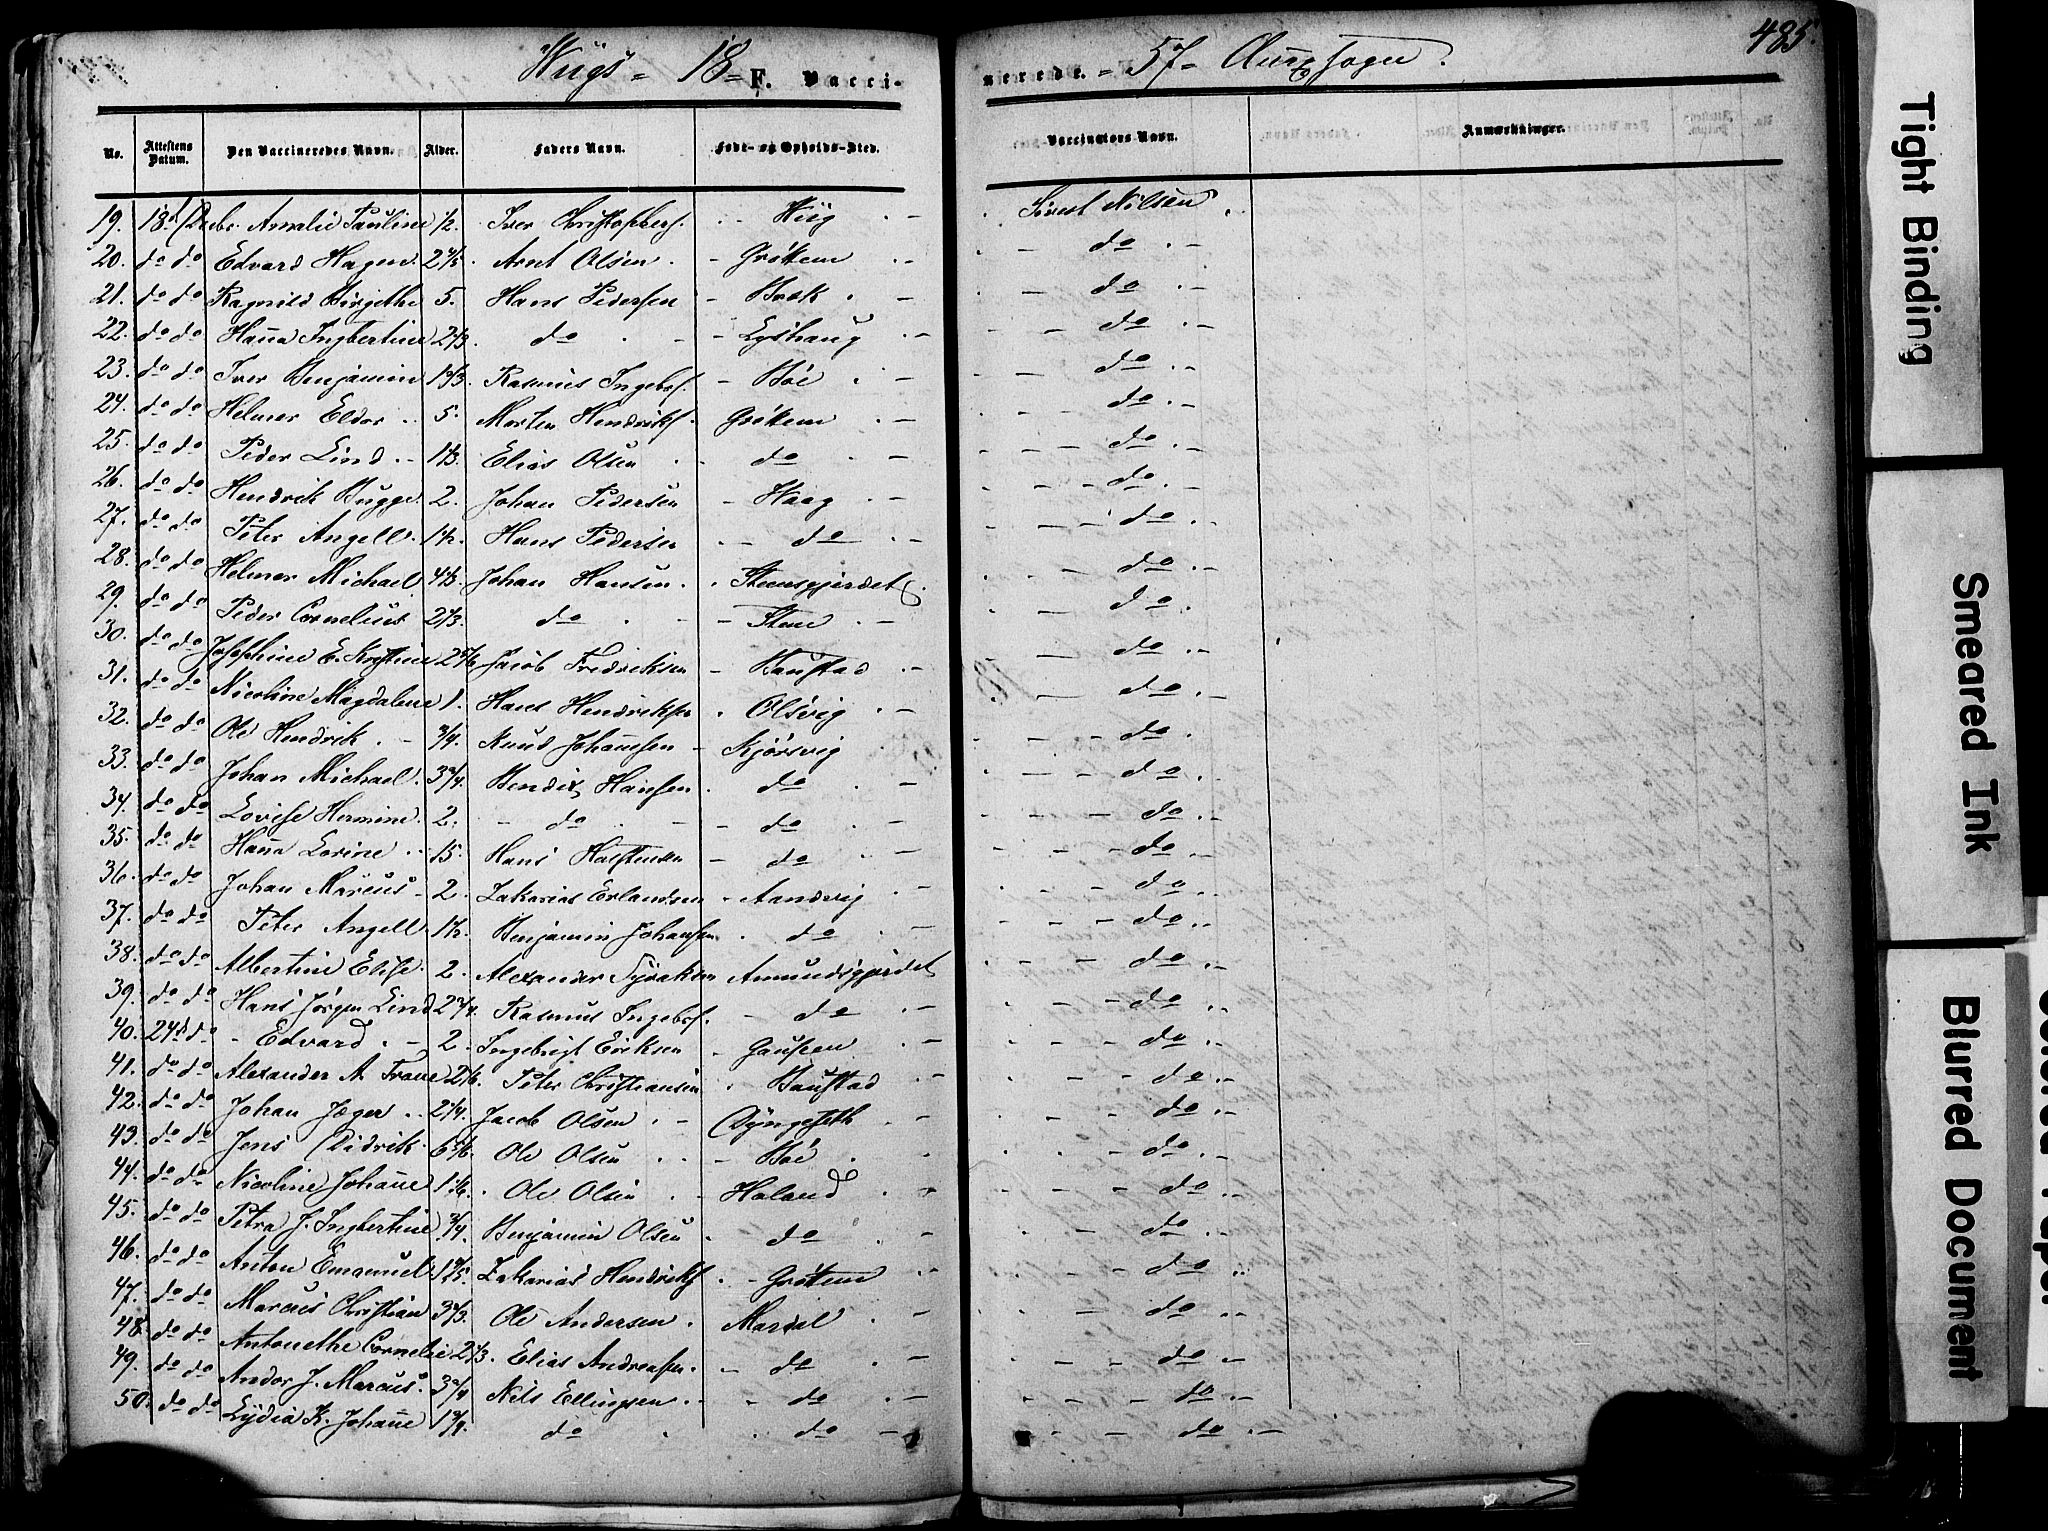 485.
Wiigs - 18 - F. Vacci-
nerede. - 57 -
No.
Attestens Datum.
Den Vaccineredes Navn.
Alder.
Faders Navn.
Føde- og Opholds-Sted.
Vaccinators Navn.
Anmærkninger.
19. 18d Decbr. Amalie Pauline 1/2. Iver Christophers. - Wiig - Sivert Nilsen
20. do do Edvard Hagen 2 Arnt Olsen - Gröttem - do
21. do do Ragnild Birgithe 5. Hans Pedersen - do
22. do do Hanna Ingbertine 2 do - Lyshaug - do
23. do do Iver Benjamin 1 Rasmus Ingebr. - Böe - do
24. do do Helmer Eldor 5. Morten Hendriks. Gröttem - do
25. do do Peder Lind 1 Elias Olsen do - do
26. do do Hendrik Bugge 2. Johan Pedersen - Haag - do
27. do do Peter Angell 1 1/2. Hans Pedersen - do - do
28. do do Helmer Michael 4 Johan Hansen Steensgjerdet - do
29. do do Peder Cornelius 2 do - Steen - do
30. do do Josephine E. Kristine 2 Jacob Fredriksen - Baustad - do
31. do do Nicoline Magdalene 1. Hans Hendriksen Olsvig - do
32. do do Ole Hendrik 3/4. Knud Johannesen - Kjörsvig - do
33. do do Johan Michael 3 Bendix Hansen do - do
34. do do Lovise Hermine 2. do - do - do
35. do do Hanna Lorine 15. Hans Halstensen - do - do
36. do do Johan Marcus 2. Zakarias Erlandsen Aandvig - do
37. do do Peter Angell 1 1/2. Benjamin Johansen do - do
38. do do Albertine Elise 2. Alexander Amundsgjerdet - do
39. do do Hans Jörgen Lind 2 3/4. Rasmus Ingebr. - do - do
40. 24d do Edvard 2. Ingebrigt Eriksen Gausen - do
41. do do Alexander A. 2 Peter Christiansen Baustad - do
42. do do Johan Jæger 2 1/4. Jacob Olsen - Dyngeseth - do
43. do do Jens Didrik 6 Ole Olsen - Böe - do
44. do do Nicoline Johanne 1 Ole Olsen - Holand - do
45. do do Petra J. Ingbertine 3/4. Benjamin Olsen do - do
46. do do Anton Emanuel 1 Zakarias Hendriks. - Gröttem - do
47. do do Marcus Christian 3 Ole Andersen - do
48. do do Antonethe Cornelie 2 Elias Andreasen - do - do
49. do do Andor J. Marcus 3 Nils Ellingsen - do - do
50. do do Lydia K. Johanne 1 do do - do
Tight Binding
Smeared Ink
Blurred Document